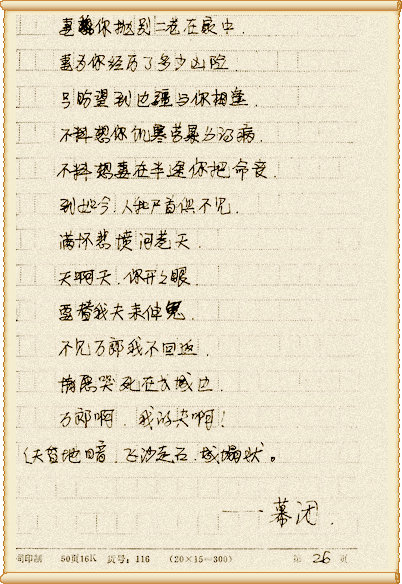 妻为你抛别二老在家中.
妻为你经历了多少凶险
只盼望到边疆与你相逢.
不料想你饥寒劳累 病.
不料想妻在半途你把命丧.
到如今人和尸首俱不见.
满怀悲愤问苍天.
天啊天.你开开眼.
要替我夫来伸冤.
不见万郎我不回返.
情愿哭死在长城边.
万郎啊.我的夫啊!
(天昏地暗.飞沙走石.城塌状。
——幕闭.
司印制 50页16K 货号:116 (20×15=300) 第 26 页